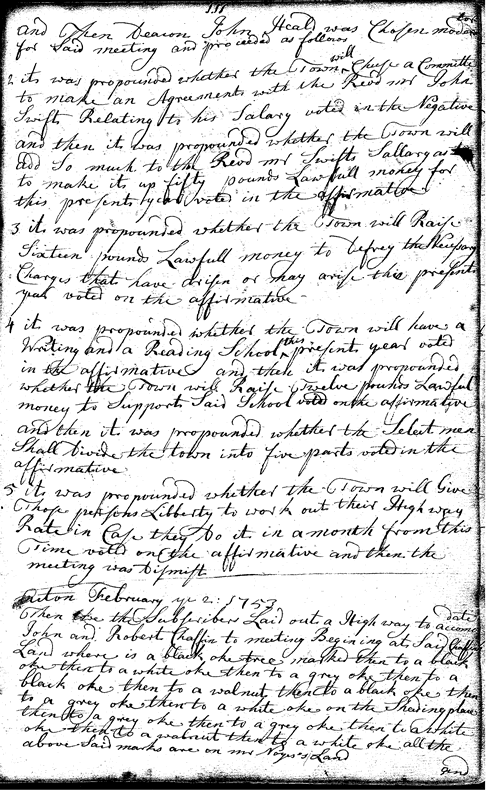 111
and Then Deacon John Heald was Chosen modarator
for Said meeting and proceeded as follows
2 its was propounded whether the Town will Chuse a Committe
to make an Agreements with the Revd mr John
Swift Relating to his Salary voted in the Nagative
and then it was propounded whether the Town will
add So much to the Revd mr Swifts Sallary as
to make it up fifty pounds Lawfull money for
this presents year voted in the affirmative
3 its was propounded whether the Town will Raise
Sixteen pounds Lawfull money to Defrey the Necessary
Charges that have arisen or may arise this presents
year voted on the affirmative
4 its was propounded whether the Town will have a
Writing and a Reading School this presents year voted
in the affirmative and then it was propounded
whether the Town will Raise Twelve pounds Lawfull
money to Supports Said School voted on the affirmative
and then it was propounded whether the Select men
Shall Divide the town into five parts voted in the
affirmative
5 its was propounded whether the Town will Give
Those persons Libberty to work out their High way
Rate in Case they Do it in a month from this
Time voted on the affirmative and then the
meeting was Dismist
acton February ye 2: 1753
Then we the Subscriber Laid out a High way to acomodate
John and Robert Chaffin to meeting Begining at Said Chaffins
Land where is a black oke tree marked then to a black
oke then to a white oke then to a grey oke then to a
black oke then to a walnut then to a black oke then
to a grey oke then to a white oke on the Shaving place
then to a grey oke then to a grey oke then to a white
oke then to a walnut then to a white oke all the
above Said marks are on mr Noyes's Land
and